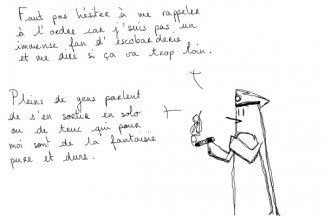 Faut pas hésiter à me rappeler
à l'ordre car j'suis pas un
immense fan d'escobarderie
et me dire si ça va trop loin.
Pleins de gens parlent
de s'en sortir en solo
ou de truc qui pour
moi sont de la fantaisie
pure et dure.